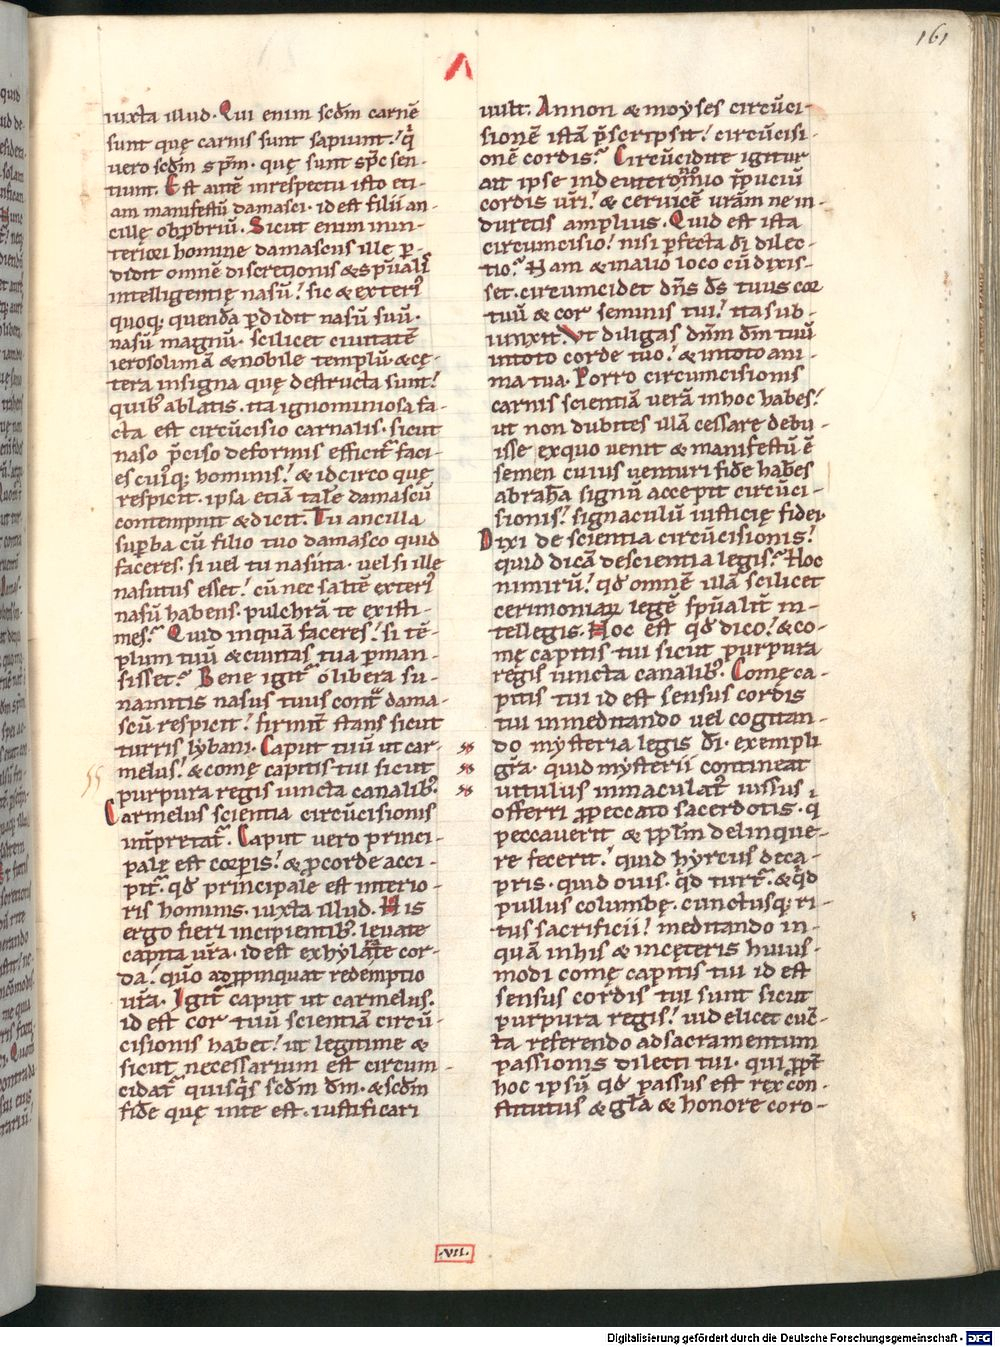 161
iuxta illud. Qui enim scdm carnē
sunt quę carnis sunt sapiunt. q̇
vero scdm sp̄m. quę sunt sp̄c sen-
tiunt. Est autē inrespectu isto eti-
am manifestū damasci. id est filii an-
cillę obp̄briū. Sicut enim inin-
teriori homine damascus ille p̄-
didit omnē discretionis & sp̄uali
intelligentię nasū. sic & exteri
quoq; quendā p̄didit nasū suū.
nasū magnū. scilicet ciuitatē
ierosolimā & nobile templū. & cę-
tera insignia quę destructa sunt.
quib; ablatis. ita ignominiosa fa-
cta est circūcisio carnalis. sicut
naso p̄ciso deformis efficit faci-
es cuiusq; hominis. & idcirco quę
respicit. ipsa etiā tale damascū
contempnit & dicit. Tu ancilla
sup̄ba cū filio tuo damasco quid
faceres. si vel tu nasuta. vel si ille
nasutus esset. cū nec saltē exteri
nasū habens. pulchrā te existi-
mes. Quid inquā faceres. si tē-
plum tuū & ciuitas tua p̄man-
sisset. Bene igit o libera su-
namitis nasus tuus contra dama-
scū respicit. firmit stans sicut
turris lybani. Caput tuū ut car-
melus. & comę capitis tui sicut
purpura regis iuncta canalib;
Carmelus scientia circūcisionis
int̄pretat. Caput vero princi-
pale est corpis. & p̄corde acci-
pit. qd principale est interio-
ris hominis. iuxta illud. His
ergo fieri incipientib; leuate
capita vr̄a. id est exhylarate cor-
da. quō adp̄pinquat redemptio
vr̄a. Igit caput ut carmelus.
id est cor tuū scientiā circū-
cisionis habet. ut legitime &
sicut necessarium est circum-
cidat quisq̇s scdm dm̄. & scdm
fidē quę inte est. iustificari
uult. Annon & moyses circūci-
sionē istā p̄scripsit. circūcisi-
onē cordis. Circūcidite igitur
ait ipse indeuteronomio p̄puciū
cordis vr̄i. & ceruicē vr̄am ne in-
duretis amplius. Quid est ista
circumcisio. nisi p̄fecta di dilec-
tio. Nam & inalio loco cū dixis-
set. circumcidet dn̄s ds̄ tuus cor
tuū & cor seminis tui. ita sub-
iunxit. Vt diligas dn̄m dm̄ tuū
intoto corde tuo. & intoto ani-
ma tua. Porro circumcisionis
carnis scientiā verā inhoc habes.
ut non dubites illā cessare debu-
isse exquo uenit & manifestū ē
semen cuius venturi fide habes
abraha signū accepit circūci-
sionis. signaculū iusticię fidei.
Dixi de scientia circūcisionis.
quid dicā descientia legis. Hoc
nimirū. qd omnē illā scilicet
cerimoniarum legē sp̄ualit in-
tellegis. Hoc est qd dico. & co-
mę capitis tui sicut purpura
regis iuncta canalib; Comę ca-
pitis tui id est sensus cordis
tui inmeditando uel cogitan-
do mysteria legis di. exempli
gr̄a. quid mysterii contineat
uitulus inmaculat iussus
offerri p̄peccato sacerdotis. q
peccauerit & pp̄lm delinque-
re fecerit. quid hyrcus deca-
pris. quid ouis. q̇d turt. & q̇d
pullus columbę. cunctusq; ri-
tus sacrificii. meditando in-
quā inhis & incęteris huius-
modi comę capitis tui id est
sensus cordis tui sunt sicut
purpura regis. uidelicet cūc-
ta referendo adsacramentum
passionis dilecti tui. qui pp̄t
hoc ipsū qd passus est rex con-
stitutus & glā & honore coro-
.VII.
Digitalisierung gefördert durch die Deutsche Forschungsgemeinschaft - DFG